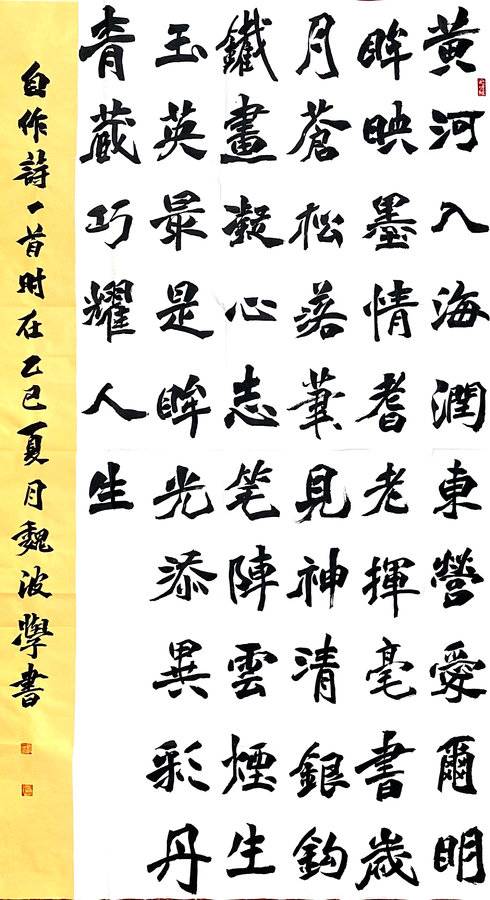 黃河入海潤東營愛爾明
眸映墨情耆老揮毫書歲
月蒼松落筆見神清銀鈎
鐵畫凝心志笔陣雲煙生
玉英最是眸光添異彩丹
青藏巧耀人生
自作詩一首時在乙巳夏月魏波學書